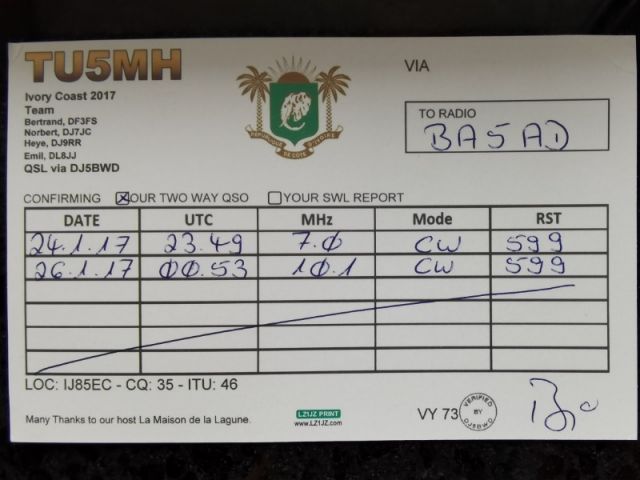 TU5MH
Ivory Coast 2017
Team
Bertrand, DF3FS
Norbert, DJ7JC
Heye, DJ9RR
Emil, DL8JJ
QSL via DJ5BWD
REPUBLIQUE DE CÔTE D'IVOIRE
VIA
TO RADIO
BA5AD
CONFIRMING ☒OUR TWO WAY QSO ☐YOUR SWL REPORT
DATE UTC MHz Mode RST
24.1.17 23.49 7.0 CW 599
26.1.17 00.53 10.1 CW 599
LOC: IJ85EC - CQ: 35 - ITU: 46
Many Thanks to our host La Maison de la Lagune.
LZ1JZ PRINT
www.LZ1JZ.com
VY 73
VERIFIED BY DJ5BWD